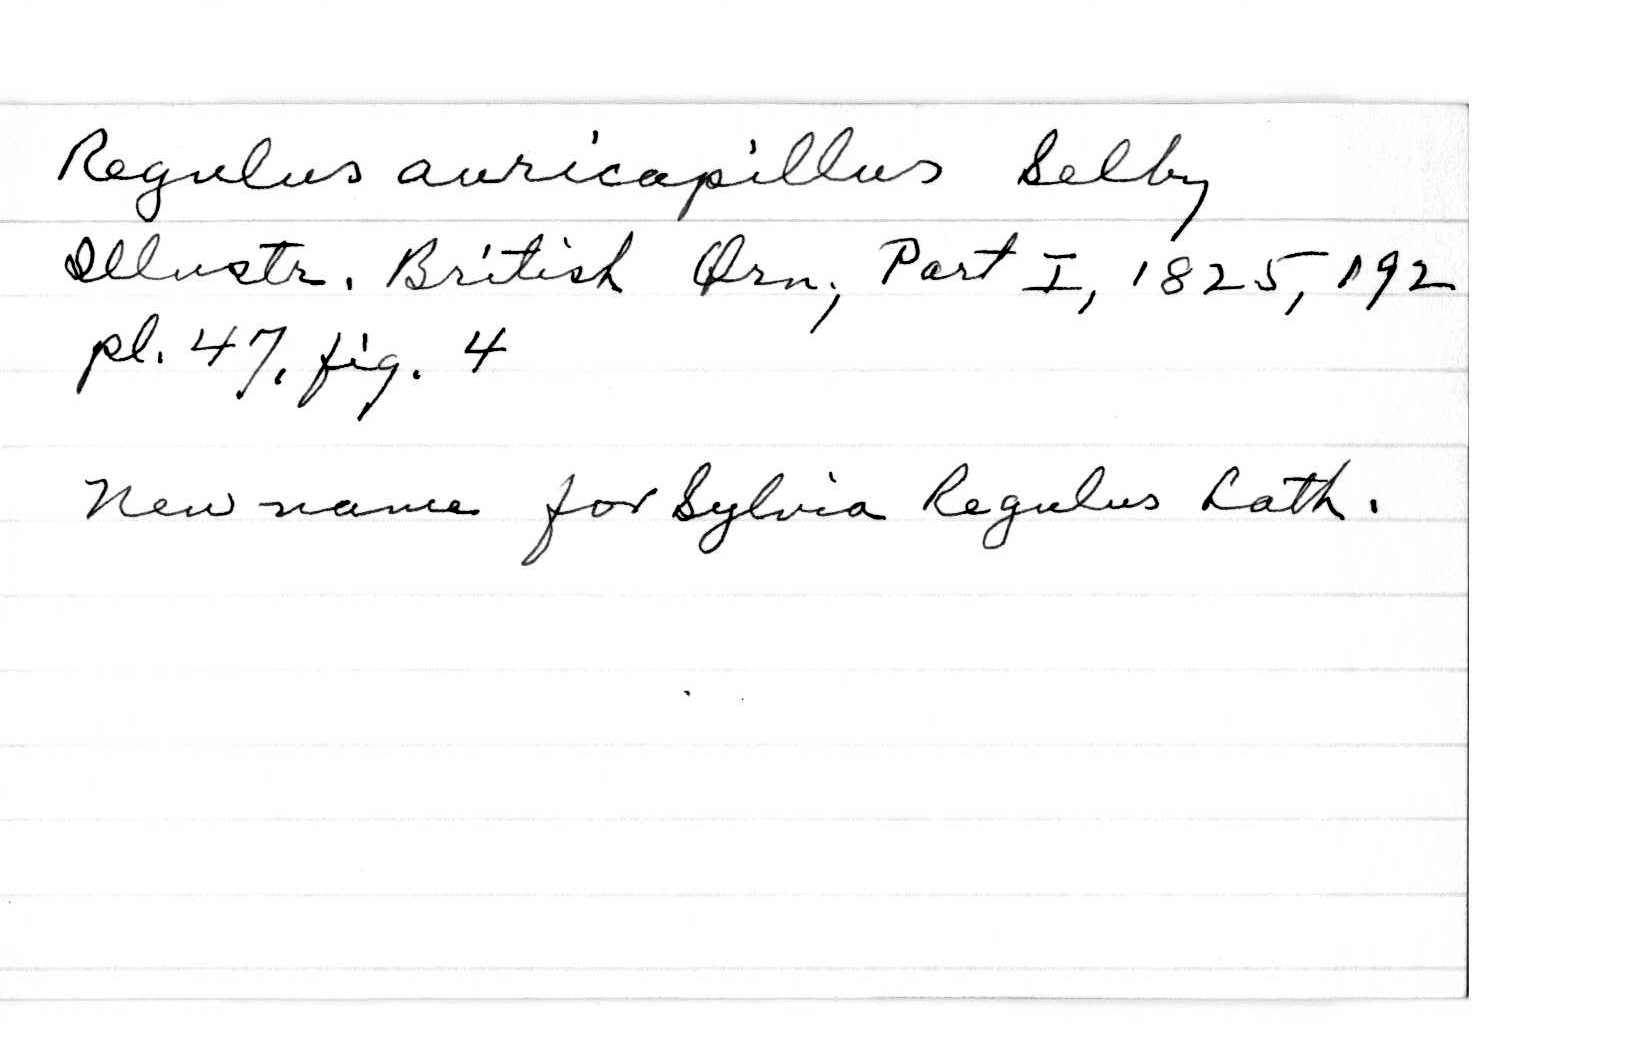 Regulus auricapillus Selby
Illustr. British Orn., Part I, 1825, 192
pl. 47, fig. 4
New name for Sylvia Regulus Lath.